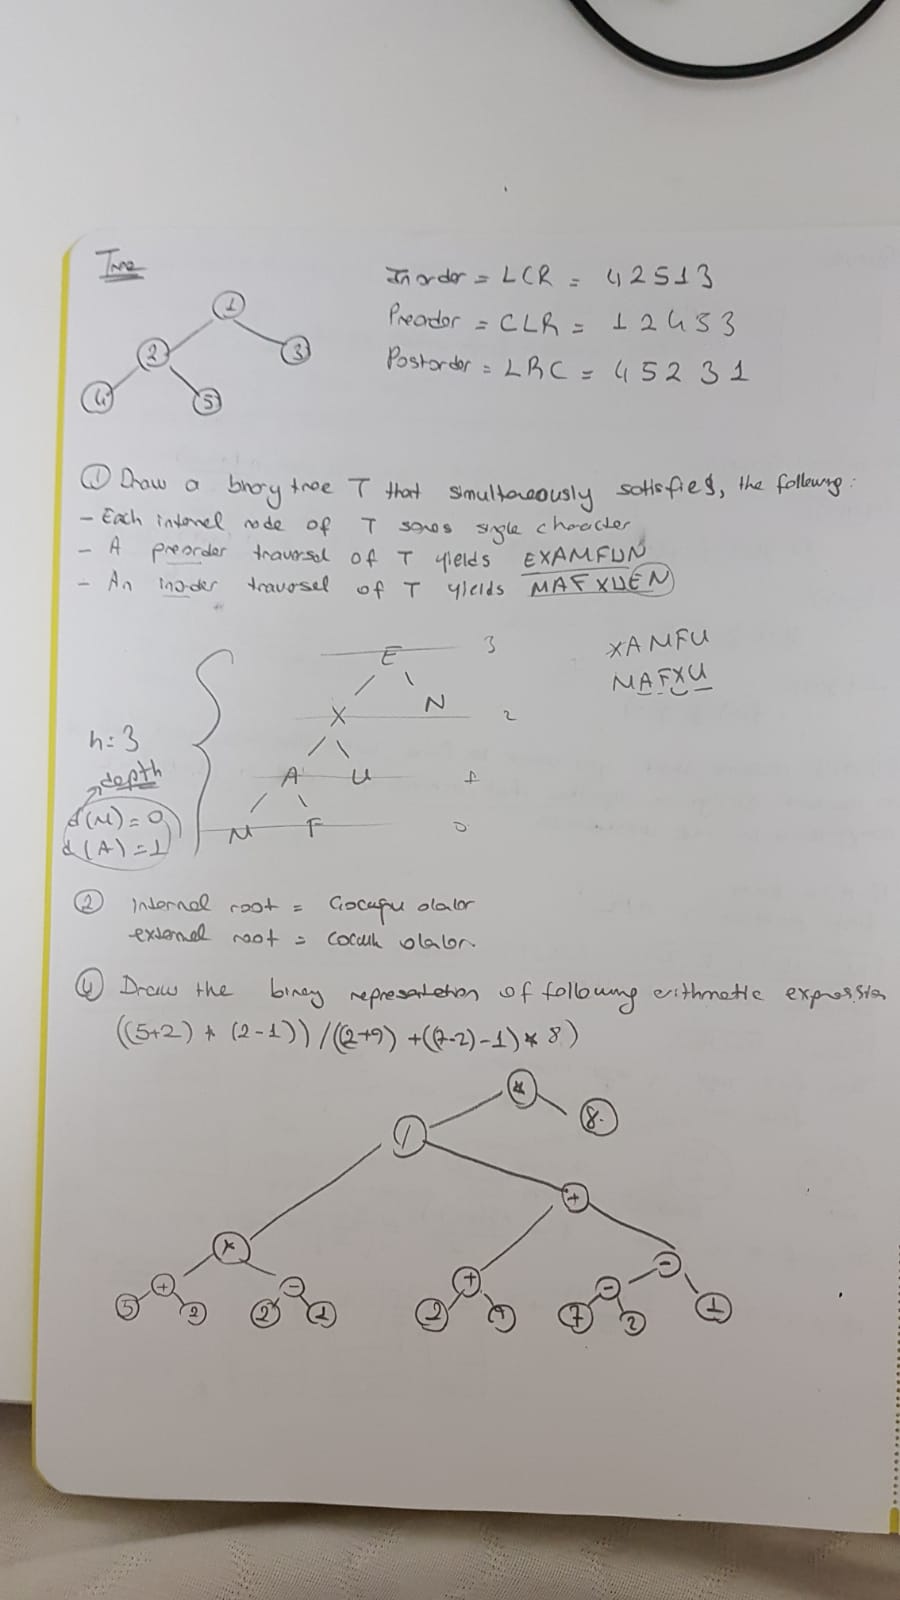 Tree
1
2
3
4
5
Inorder = LCR = 42513
Preorder = CLR = 12453
Postorder = LRC = 45231
① Draw a binary tree T that simultaneously satisfies, the following:
- Each internal node of T stores single character
- A preorder traversal of T yields EXAMFUN
- An inorder traversal of T yields MAFXUEN
E 3
XAMFU
N
MAFXU
X 2
h = 3
A U 1
depth
M F 0
d(M) = 0
d(A) = 1
② Internal root = Çocuğu olalar
external root = cocuk olalar.
④ Draw the binary representation of following arithmetic expression
((5+2) * (2-1)) / ((2+9) + ((7-2)-1) * 8)
*
8
/
+
*
-
+ - + -
5 2 2 1 2 9 7 2 1